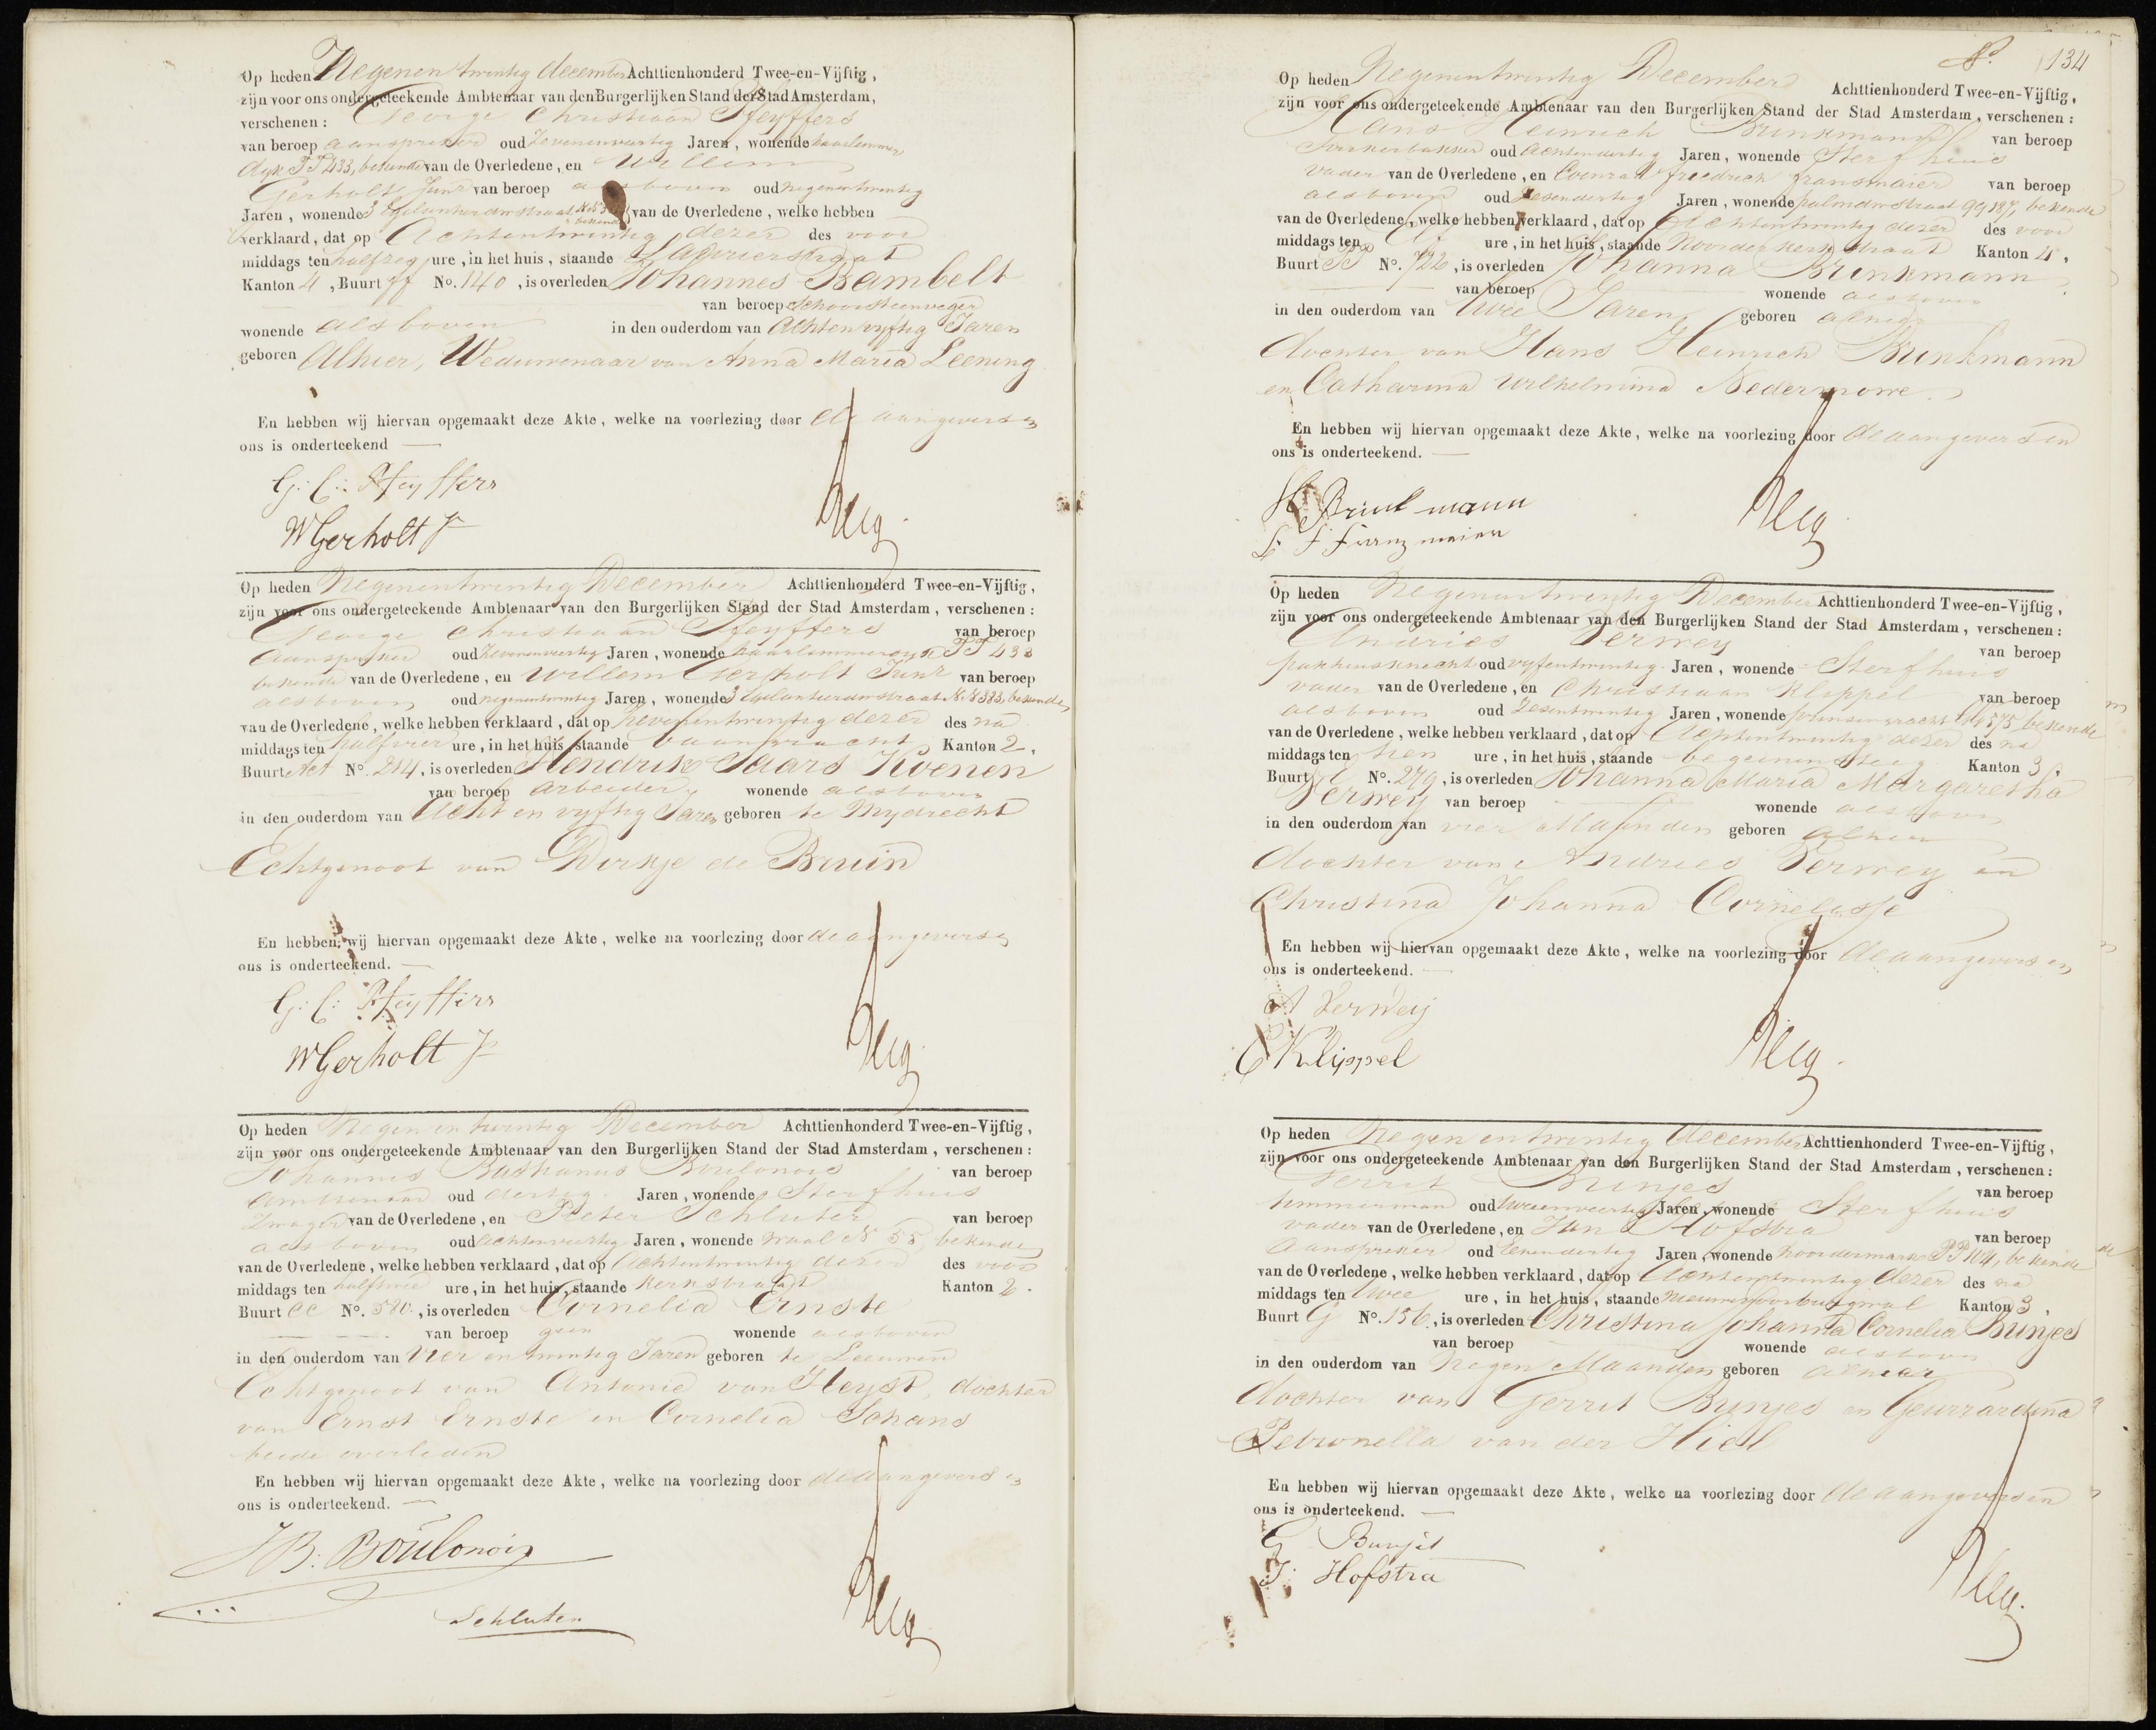 Op heden Negenentwintig december Achttienhonderd Twee-en-Vijftig,
zijn voor ons ondergeteekende Ambtenaar van den Burgerlijken Stand der Stad Amsterdam,
verschenen: George Christiaan Pfeyffers
van beroep aanspreker oud Zevenenveertig Jaren, wonende haarlemmer
dyk TT 433, bekende van de Overledene, en Willem
Gerholt Junr van beroep als boven oud negenentwintig
Jaren, wonende 3 Egelantierdwrstraat van de Overledene, welke hebben
verklaard, dat op Achtentwintig dezer des voor
middags ten half zeg ure, in het huis, staande Laurierstraat
Kanton 4, Buurt No. 140, is overleden Johannes Bambelt
van beroep Schoorsteenveger
wonende als boven in den ouderdom van Achtenvyftig Jaren
geboren Alhier, Weduwenaar van Anna Maria Leening
En hebben wij hiervan opgemaakt deze Akte, welke na voorlezing door de aangevers en
ons is onderteekend
G: C: Pfeyffers
W Gerholt Jr
Op heden Negenentwintig December Achttienhonderd Twee-en-Vijftig,
zijn voor ons ondergeteekende Ambtenaar van den Burgerlijken Stand der Stad Amsterdam, verschenen:
George Christiaan Pfeyffers van beroep
Aanspreker oud Zevenenveertig Jaren, wonende haarlemmerdyk TT 433
bekende van de Overledene, en Willem Gerholt Junr van beroep
als boven oud negenentwintig Jaren, wonende 3 Egelantierdwrstraat bekende
van de Overledene, welke hebben verklaard, dat op Zevenentwintig dezer des na
middags ten half vier ure, in het huis, staande baangracht Kanton 2,
Buurt No. 214, is overleden Hendrik Saars Koenen
van beroep Arbeider wonende als boven
in den ouderdom van Acht en vyftig Jaren geboren te Mydrecht
Echtgenoot van Dirkje de Bruin
En hebben wij hiervan opgemaakt deze Akte, welke na voorlezing door de aangevers en
ons is onderteekend.
G: C: Pfeyffers
W Gerholt Jr
Op heden Negenentwintig December Achttienhonderd Twee-en-Vijftig,
zijn voor ons ondergeteekende Ambtenaar van den Burgerlijken Stand der Stad Amsterdam, verschenen:
Johannes Boulonois van beroep
Ambtenaar oud dertig Jaren, wonende Sterfhuis
Zwager van de Overledene, en Pieter Schluter van beroep
als boven oud achtenveertig Jaren, wonende waal N 55, bekende
van de Overledene, welke hebben verklaard, dat op Achtentwintig dezer des voor
middags ten half twee ure, in het huis, staande Kerkstraat Kanton 2.
Buurt CC No. 580, is overleden Cornelia Ernste
van beroep geen wonende als boven
in den ouderdom van Vier en twintig Jaren geboren te Leeuwen
Echtgenoot van Antonie van Heyst, dochter
van Ernst Ernste en Cornelia Johans
beide overleden
En hebben wij hiervan opgemaakt deze Akte, welke na voorlezing door de aangevers en
ons is onderteekend.
J B: Boulonois
Schluter
134
Op heden Negenentwintig December Achttienhonderd Twee-en-Vijftig,
zijn voor ons ondergeteekende Ambtenaar van den Burgerlijken Stand der Stad Amsterdam, verschenen:
Hans Heinrich Brinkmann van beroep
Suikerbakker oud Achtendertig Jaren, wonende Sterfhuis
vader van de Overledene, en Coenrad Friedrich Fransmaier van beroep
als boven oud Zesendertig Jaren, wonende palmdwrstraat 99 187, bekende
van de Overledene, welke hebben verklaard, dat op Achtentwintig dezer des voor
middags ten Elf ure, in het huis, staande Noorder kerk straat Kanton 4,
Buurt PP No. 722, is overleden Johanna Brinkmann
van beroep wonende als boven
in den ouderdom van Twee Jaren geboren alhier
dochter van Hans Heinrich Brinkmann
en Catharina Wilhelmina Nedermowe.
En hebben wij hiervan opgemaakt deze Akte, welke na voorlezing door de aangevers en
ons is onderteekend.
H Brinkmann
C F Franzmeier
Op heden Negenentwintig December Achttienhonderd Twee-en-Vijftig,
zijn voor ons ondergeteekende Ambtenaar van den Burgerlijken Stand der Stad Amsterdam, verschenen:
Andries Verwey van beroep
pakhuisknecht oud vyfentwintig Jaren, wonende Sterfhuis
vader van de Overledene, en Christiaan Klippel van beroep
als boven oud Zesentwintig Jaren, wonende prinsengracht 575 bekende
van de Overledene, welke hebben verklaard, dat op Achtentwintig dezer des na
middags ten tien ure, in het huis, staande begynensteeg Kanton 3,
Buurt No. 279, is overleden Johanna Maria Margaretha
Verwey van beroep wonende als boven
in den ouderdom van vier Maanden geboren alhier
dochter van Andries Verwey en
Christina Johanna Cornelisse
En hebben wij hiervan opgemaakt deze Akte, welke na voorlezing door de aangevers en
ons is onderteekend.
A Verweij
C Klippel
Op heden Negen en twintig december Achttienhonderd Twee-en-Vijftig,
zijn voor ons ondergeteekende Ambtenaar van den Burgerlijken Stand der Stad Amsterdam, verschenen:
Gerrit Bunjes van beroep
timmerman oud tweeenveertig Jaren, wonende Sterfhuis
vader van de Overledene, en Jan Hofstra van beroep
Aanspreker oud Eenendertig Jaren, wonende noordermarkt PP 104, bekende
van de Overledene, welke hebben verklaard, dat op Achtentwintig dezer des na
middags ten twee ure, in het huis, staande nieuwezvoorburgwal Kanton 3,
Buurt G No. 156, is overleden Christina Johanna Cornelia Bunjes
van beroep wonende als boven
in den ouderdom van Negen Maanden geboren alhier
dochter van Gerrit Bunjes en Geurrardina
Petronella van der Hiel
En hebben wij hiervan opgemaakt deze Akte, welke na voorlezing door de aangevers en
ons is onderteekend.
G Bunjes
J: Hofstra